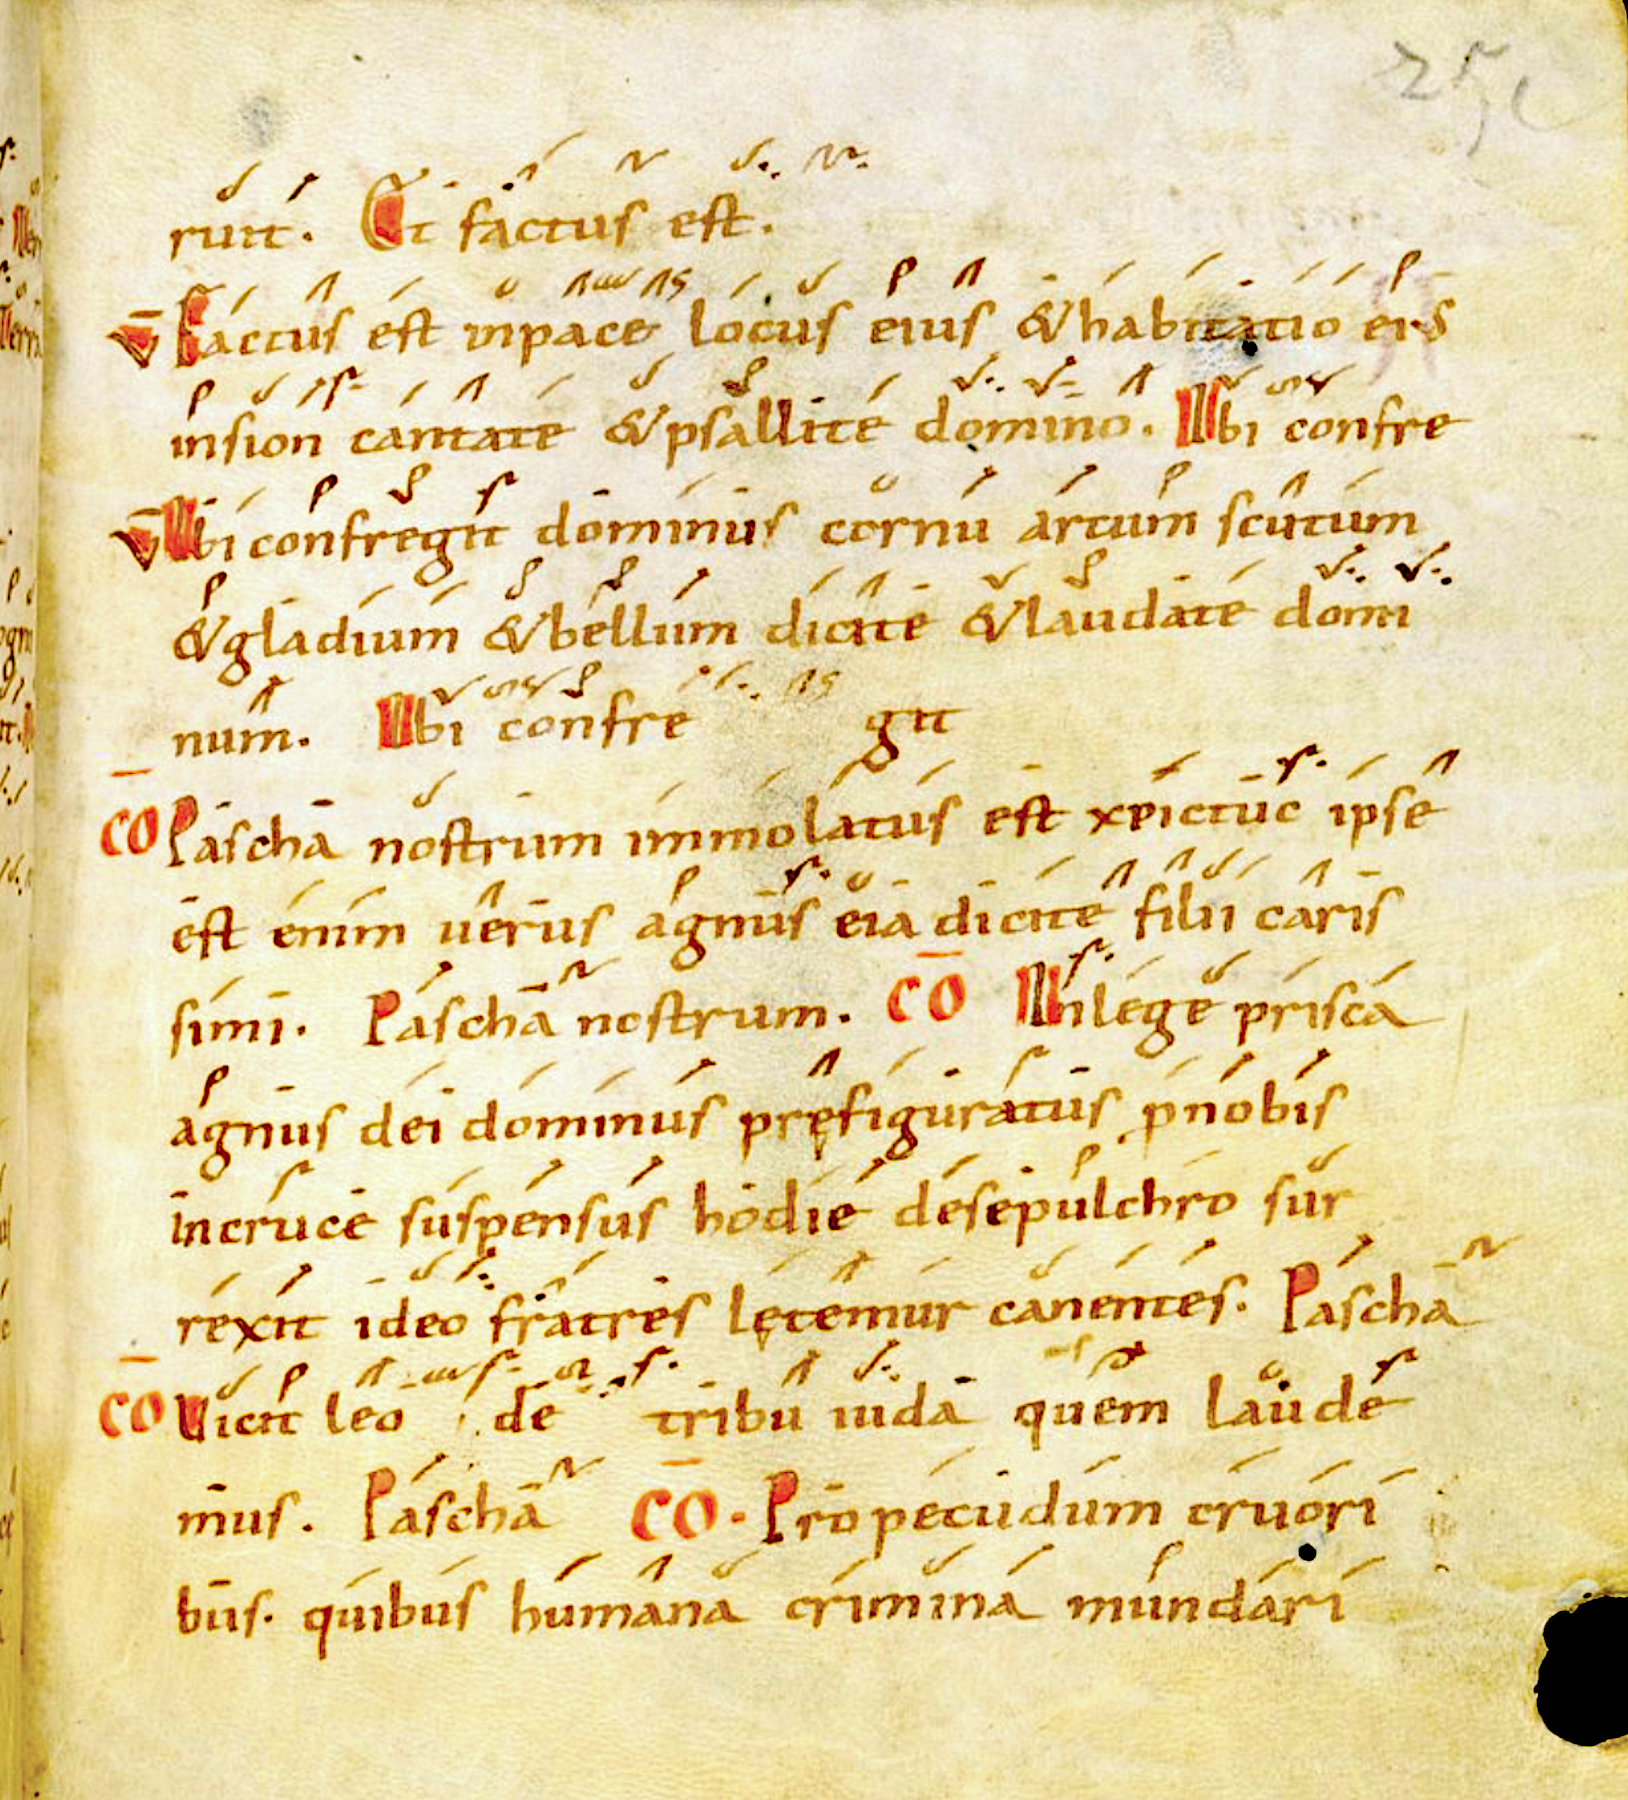 runt. Et factus est.
V Factus est inpace locus eius & habitatio eius
insion cantate & psallite domino. Ubi confre
V Ubi confregit dominus cornu arcum scutum
& gladium & bellum dicite & laudate domi
num. Ubi confre git
CO Pascha nostrum immolatus est xpictuc ipse
est enim uerus agnus eia dicite filii caris
simi. Pascha nostrum. CO Inlege prisca
agnus dei dominus pręfiguratus pnobis
incruce suspensus hodie desepulchro sur
rexit ideo fratres lętemur canentes. Pascha
CO Uicit leo de tribu iuda quem laude
mus. Pascha CO. Propecudum cruori
bus. quibus humana crimina mundari